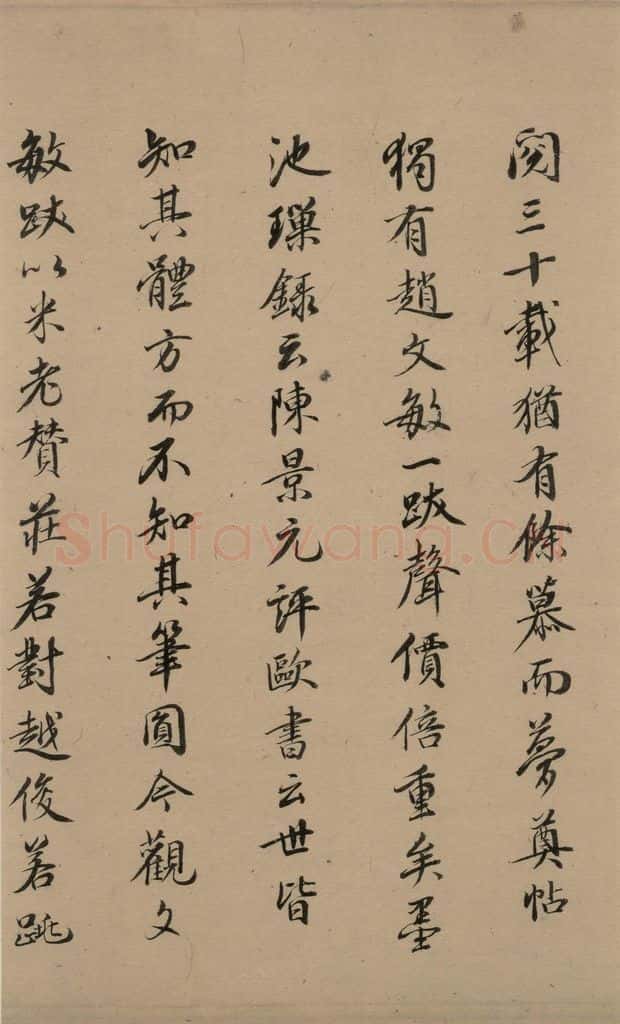 閱三十載猶有餘慕而夢奠帖
獨有趙文敏一跋聲價倍重矣墨
池璅錄云陳景元評歐書云世皆
知其體方而不知其筆圓今觀文
敏跋以米老贊莊若對越俊若跳
Shufawang.CN